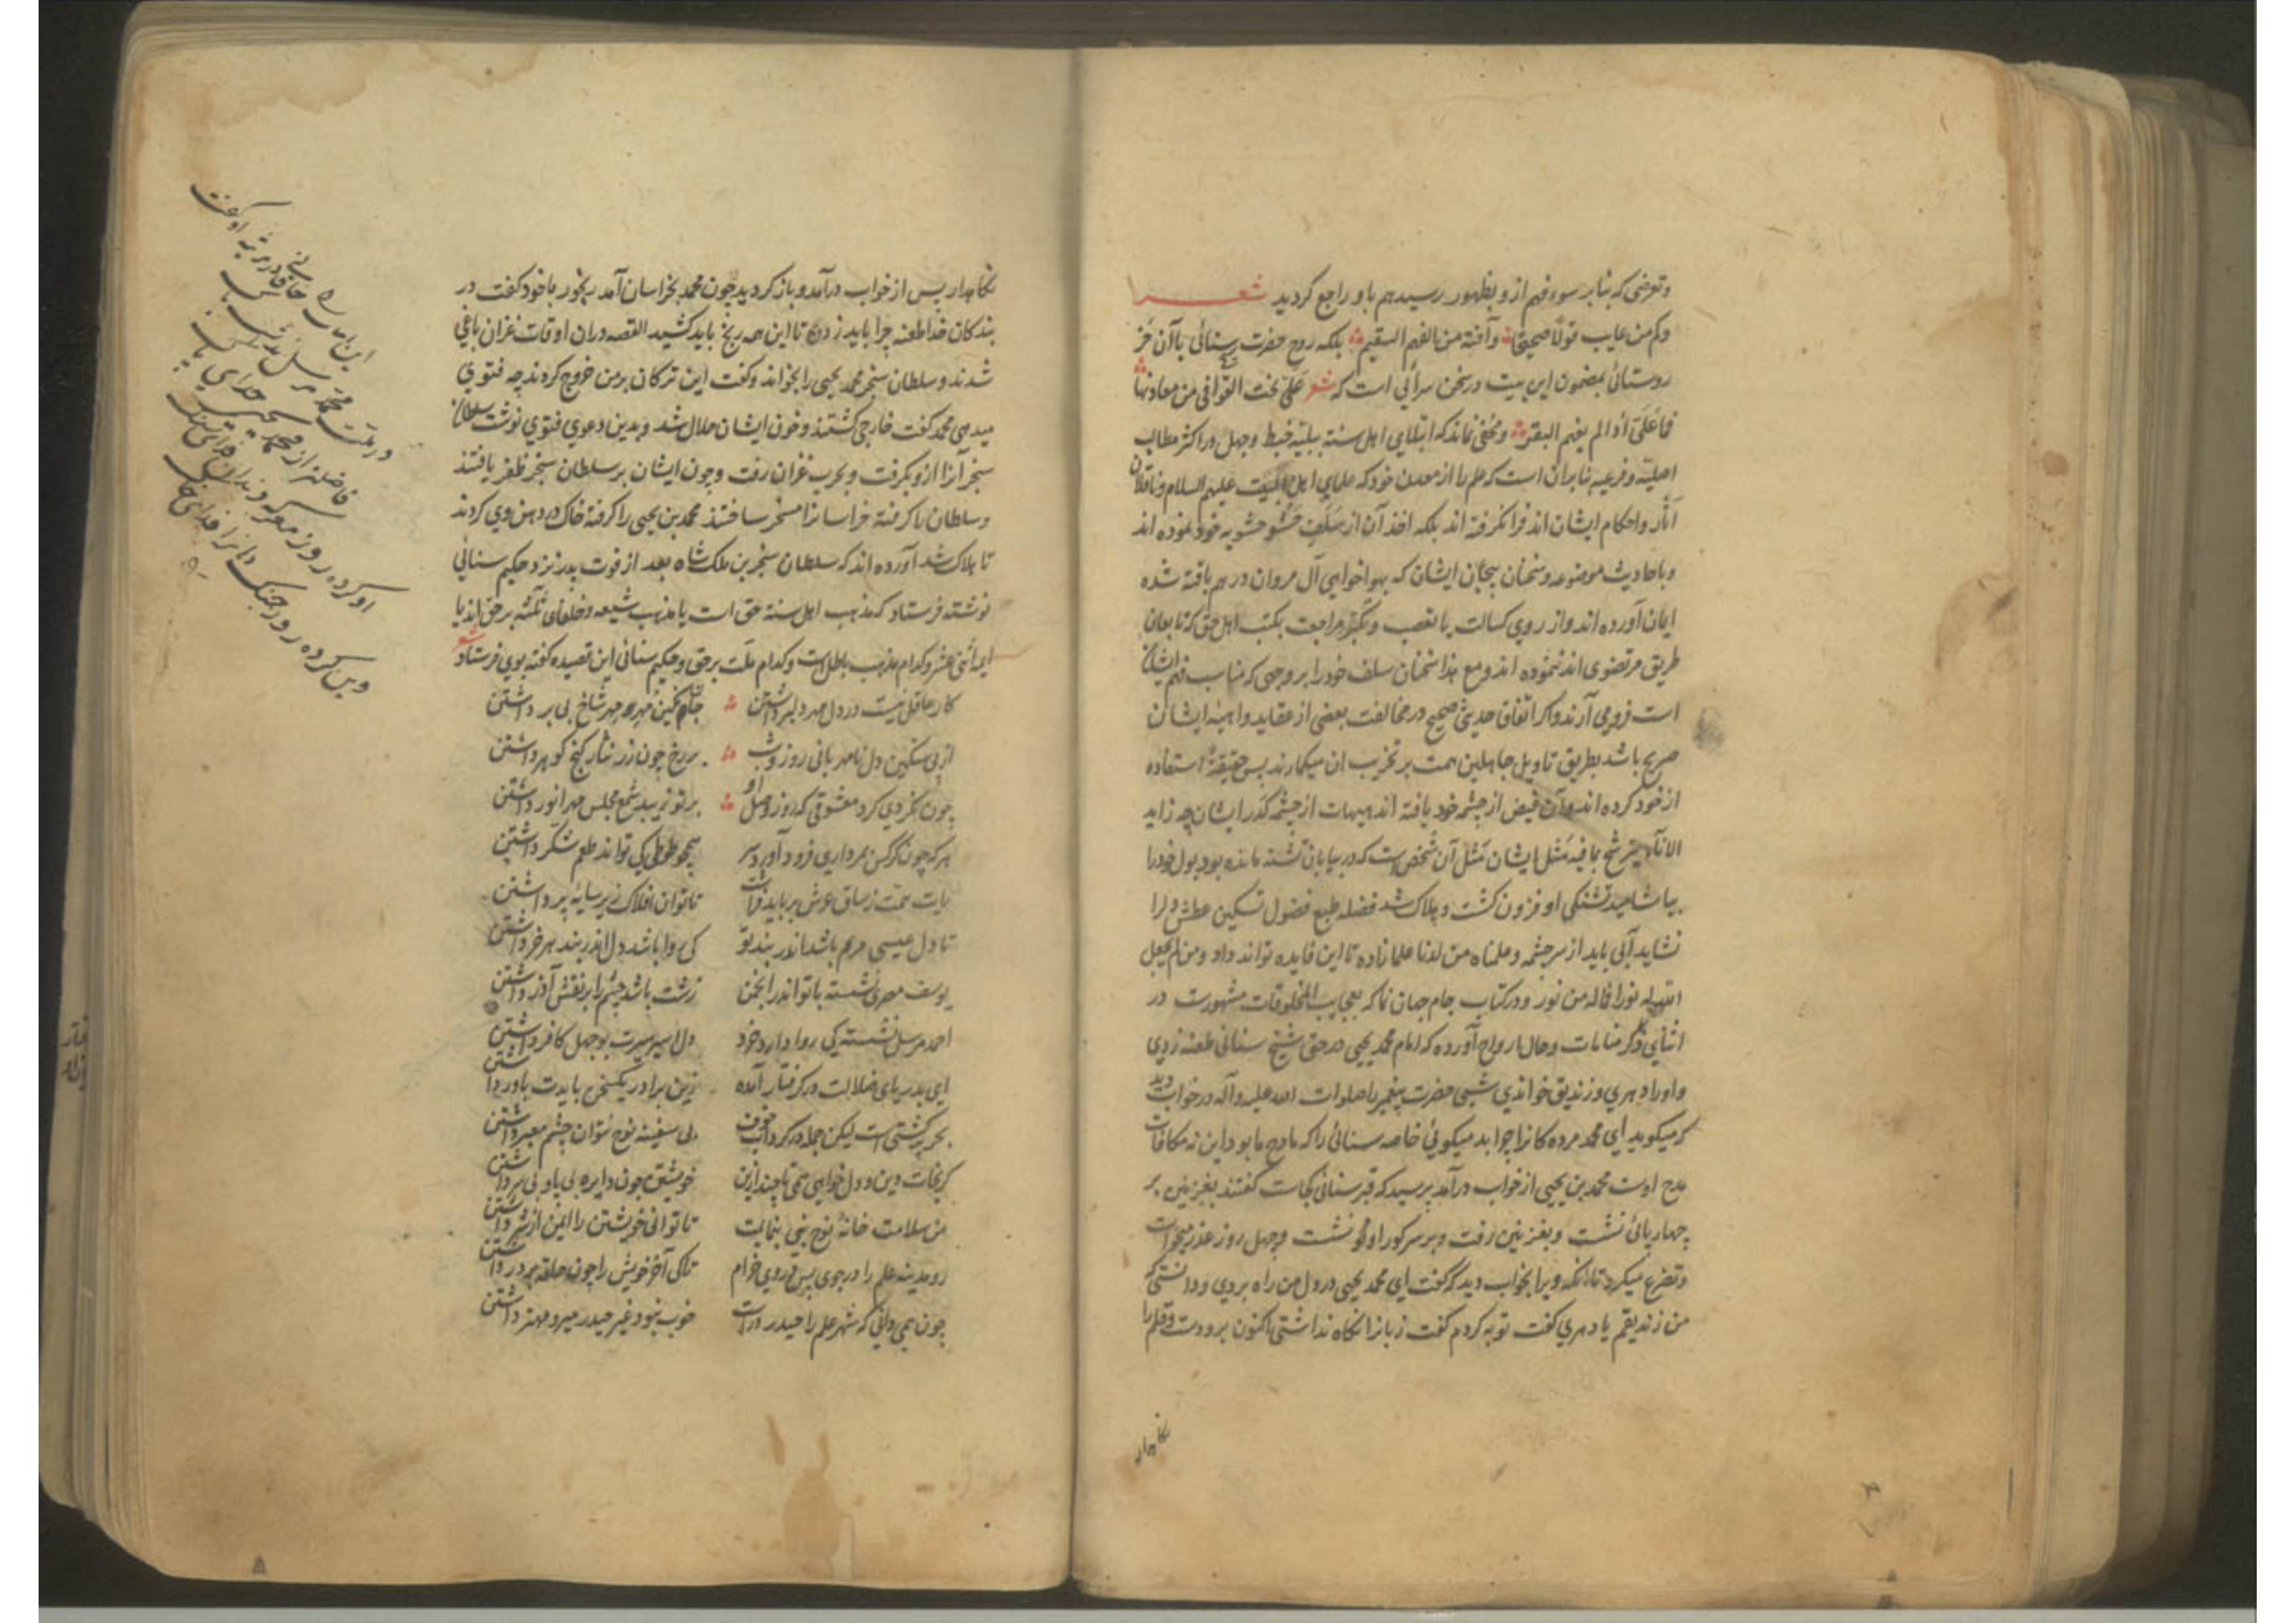 وتعرضی که بنابر سوء فهم ازو بظهور رسید هم باو راجع کردید شعر
وکم من عایب قولا صحیحا وآفته من الفهم السقیم بلکه روح حضرت سنائی با آن خر
روستائی بمضمون این بیت در سخن سرائی است که شعر علیّ نحت القوافی من معادنها
فما علیّ اذا لم یفهم البقر ومخفی نماند که ابتلای اهل سنة ببلیّه خبط وجهل در اکثر مطالب
اصلیّه وفرعیه بنابران است که علم را از معدن خود که علمای اهل البیت علیهم السلام وناقلان
آثار واحکام ایشان اند فرا نکرفته اند بلکه اخذ آن از سلف حشو حشویه خود نموده اند
وباحادیث موضوعه وسخنان بیجان ایشان که بهواخواهی آل مروان در هم بافته شده
ایمان آورده اند واز روی کسالت یا تعصب وتکبّر مراجعت بکتب اهل حق که تابعان
طریق مرتضوی اند ننموده اند ومع هذا سخنان سلف خود را بر وجهی که مناسب فهم ایشان
است فرو می آرند واکر اتفاقا حدیثی صحیح در مخالفت بعضی از عقاید واهیه ایشان
صریح باشد بطریق تاویل جاهلین همت بر تخریب ان میکمارند پس حقیقةً استفاده
از خود کرده اند وآن فیض از چشمه خود یافته اند هیهات از چشمه کدر ایشان چه زاید
الاناء یترشح بما فیه مثل ایشان مثل آن شخص است که در بیابان تشنه مانده بود بول خود را
بیاشامید تشنکی او فزون کشت وهلاک شد فضله طبع فضول تسکین عطش دل را
نشاید آبی باید از سرچشمه وعلمناه من لدنا علما زاده تا این فایده تواند داد ومن لم یجعل
الله له نورا فما له من نور ودر کتاب جام جهان نما که بعجایب المخلوقات مشهورست در
اثنای ذکر منامات وحال ارواح آورده که امام محمد یحیی در حق شیخ سنائی طعنه زدی
واو را دهری وزندیق خواندی شبی حضرت پیغمبر را صلوات الله علیه وآله در خواب دید
که میکوید ای محمد مرده کانرا چرا بد میکوئی خاصه سنائی را که مادح ما بود این نه مکافات
مدح اوست محمد بن یحیی از خواب درآمد پرسید که قبر سنائی کجاست کفتند بغزنین بر
چهارپائی نشست وبغزنین رفت وبر سر کور او نشست وچهل روز عذر میخواست
وتضرع میکرد تا آنکه ویرا بخواب دید که کفت ای محمد یحیی در دل من راه بردی ودانستی که
من زندیقم یا دهری کفت توبه کردم کفت زبانرا نکاه نداشتی اکنون برو دست وقلم را
نکاهدار
نکاهدار پس از خواب درآمد وباز کردید چون محمد بخراسان آمد رنجور باخود کفت در
بندکان خدا طعنه چرا باید زدن تا این همه رنج باید کشید القصه دران اوقات غزان یاغی
شدند وسلطان سنجر محمد یحیی را بخواند وکفت این ترکان بر من خروج کردند چه فتوی
میدهی محمد کفت خارجی کشتند وخون ایشان حلال شد وبدین دعوی فتوی نوشت سلطان
سنجر آنرا ازو بکرفت وبحرب غزان رفت وچون ایشان بر سلطان سنجر ظفر یافتند
وسلطان را کرفته خراسانرا مسخر ساختند محمد بن یحیی را کرفته خاک در دهن وی کردند
تا هلاک شد آورده اند که سلطان سنجر بن ملک شاه بعد از فوت پدر نزد حکیم سنائی
نوشته فرستاد که مذهب اهل سنة حق است یا مذهب شیعه وخلفای ثلثه بر حق اند یا
ایمه اثنی عشر وکدام مذهب باطل است وکدام ملّت بر حق وحکیم سنائی این قصیده کفته بوی فرستاد شعر
کار عاقل نیست در دل مهر دلبر داشتن جان نکین مهره مهر شاخ بی بر داشتن
از پی سنکین دل نامهربانی روز وشب بر رخ چون زر نثار کنج کوهر داشتن
چون نکردی کرد معشوقی که روز وصل او بر تو زیبد شمع مجلس مهر انور داشتن
هر که چون کرکس بمرداری فرود آورد سر همچو طوطی کی تواند طعم شکر داشتن
رایت همت ز ساق عرش بر باید فراشت تا توان افلاک زیر سایه پر داشتن
تا دل عیسی مریم باشد اندر بند تو کی روا باشد دل اندر بند هر خر داشتن
یوسف مصری نشسته با تو اندر انجمن زشت باشد چشم را بر نقش آذر داشتن
احمد مرسل نشسته کی روا دارد خرد دل اسیر سیرت بوجهل کافر داشتن
ای بدریای ضلالت در کرفتار آمده زین برادر یکسخن بایدت باور داشتن
بحر پر کشتی است لیکن جمله در کرداب خوف بی سفینه نوح نتوان چشم معبر داشتن
کر نجات دین ودل خواهی همی تا چند ازین خویشتن چون دایره بی پا وبی سر داشتن
من سلامت خانه نوح نبی بنمایمت تا توانی خویشتن را ایمن از شر داشتن
رو مدینه علم را در جوی پس در وی خرام تا کی آخر خویش را چون حلقه بر در داشتن
چون همی دانی که شهر علم را حیدر درست خوب نبود غیر حیدر میر ومهتر داشتن
خاقانی در مرثیه او کفت
در ملت محمد مرسل نداشت کس
فاضلتر از محمد یحیی فنای خاک
او کرد روز معرکه دندان فدای سنک
وین کرده روز جنک دهانرا فدای خاک